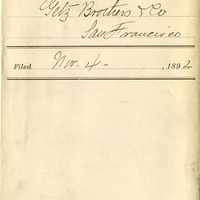 Getz Brothers & Co
San Francisco
Filed Nov. 4 - , 1892